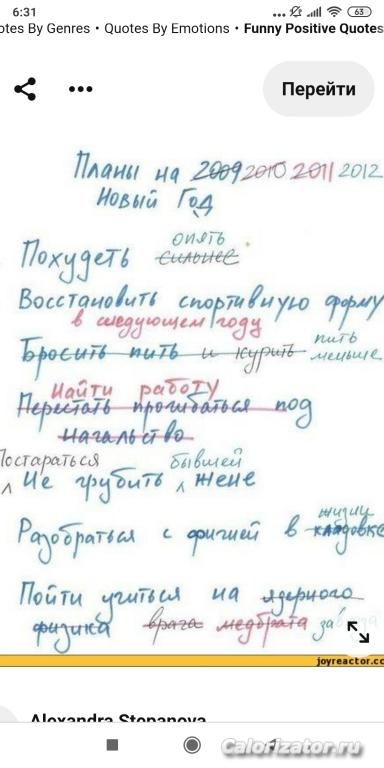 6:31
63
otes By Genres • Quotes By Emotions • Funny Positive Quotes
Перейти
Планы на 2009 2010 2011 2012
Новый Год
опять
Похудеть сильнее
Восстановить спортивную форму
в следующем году
пить
Бросить пить и курить меньше
Найти работу
Перестать прогибаться под
начальство
Постараться бывшей
Не грубить жене
жизни
Разобраться с фигнёй в кладовке
Пойти учиться на ядерного
физика врача медбрата
joyreactor.cc
Alexandra Stepanova
Calorizator.ru